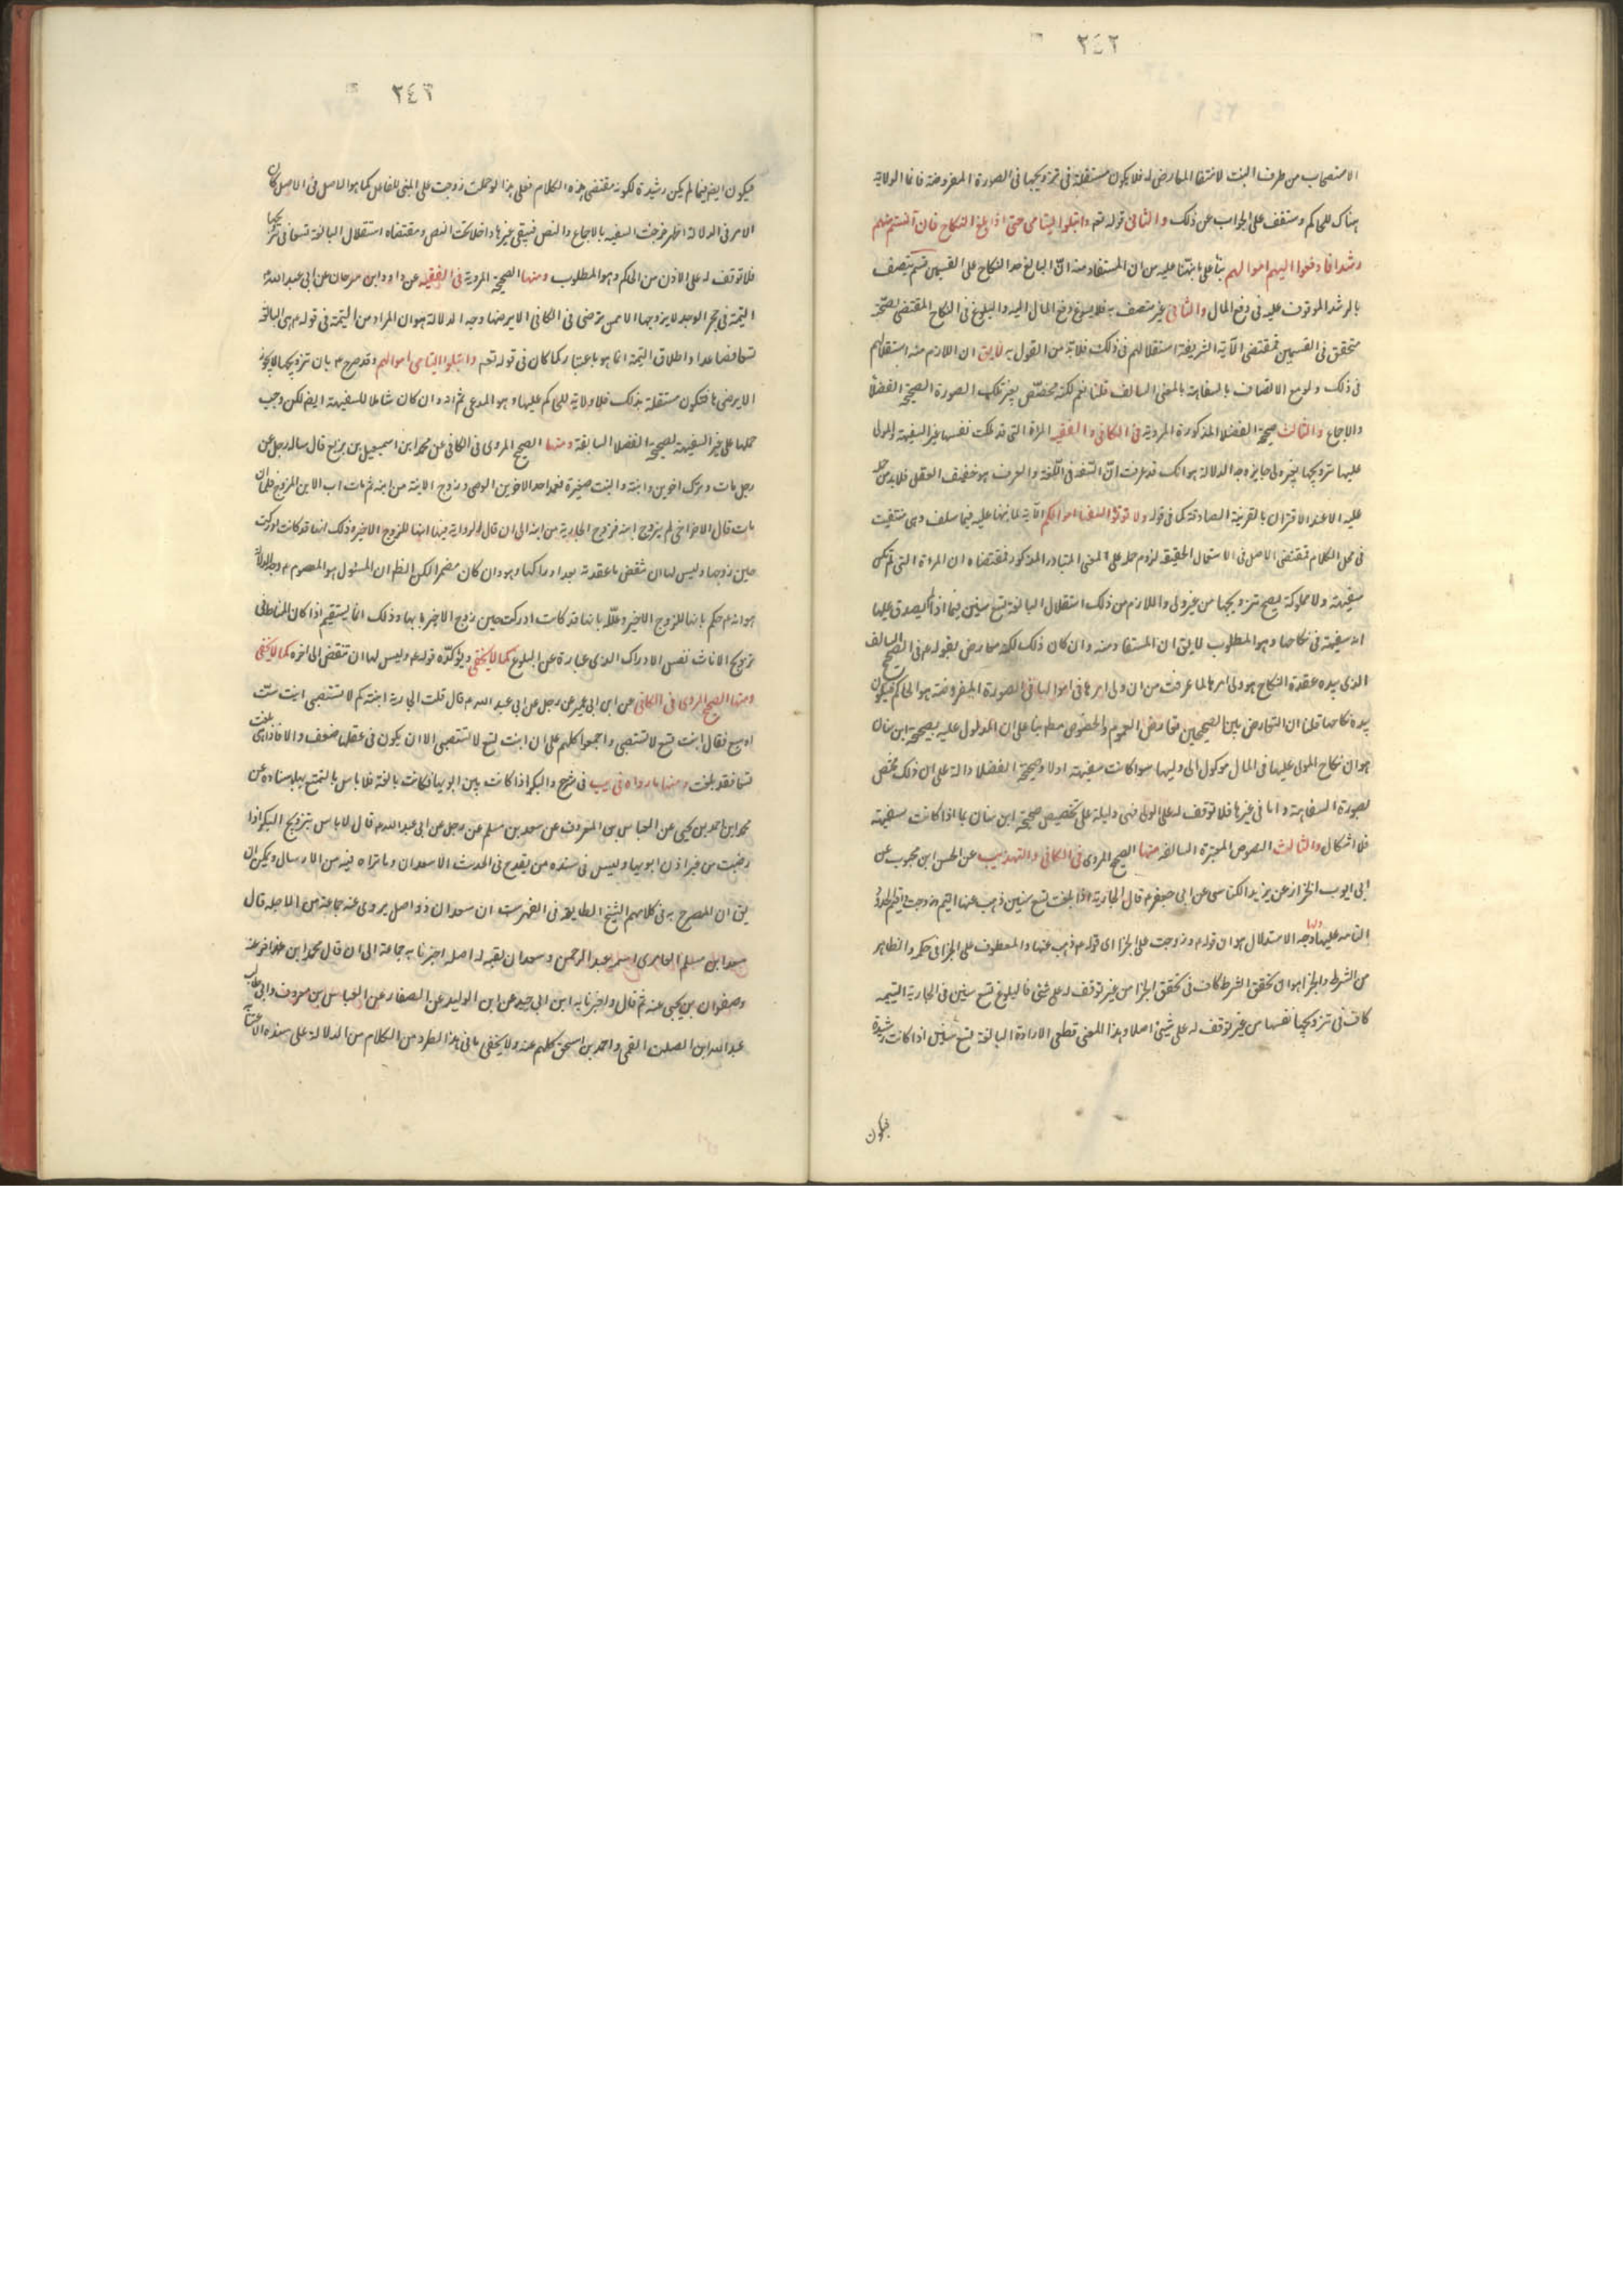 ٢٤٢
الاستصحاب من طرف البنت لانتفا المعارض له فلا يكون مستقلة فى تزويجها فى الصورة المفروضة فانما الولاية
هناك للحاكم وستقف على الجواب عن ذلك والثانى قوله تعه وابتلوا اليتامى حتى اذا بلغوا النكاح فان آنستم منهم
رشدا فادفعوا اليهم اموالهم بنأ على ما نبهنا عليه من ان المستفاد منه انّ البالغ حد النكاح على القسمين قسم يتصف
بالرشد الموقوف عليه فى دفع المال والثانى غير متصف به فلا يسوغ دفع المال اليه والبلوغ فى النكاح المقتضى لصحّته
متحقق فى القسمين فمقتضى الآية الشريفة استقلالهم فى ذلك فلابدّ من القول به لايق ان اللازم منه استقلالهم
فى ذلك ولو مع الاتصاف بالسفاهة بالمعنى السالف قلنا نعم لكنه مخصّص بغير تلك الصورة الصحيحة الفضلأ
والاجماع والثالث صحيحة الفضلا المذكورة المروية فى الكافى والفقيه المرأة التى قد ملكت نفسها غير السفيهة ولا المولى
عليها تزويجها بغير ولى جايز وجه الدلالة هو انك قد عرفت انّ السّفه فى اللّغة والعرف هو خفيف العقل فلابد من حمله
عليه الا عند الاقتران بالقرينة الصادفة كما فى قوله ولا تؤتوا السفها اموالكم الآية لما نبهنا عليه فيما سلف وهى منتفيت
فى محل الكلام فمقتضى الاصل فى الاستعمال الحقيقة لزوم حمله على المعنى المتبادر المذكور فمقتضاه ان المراة التى لم تكن
سفيهة ولا مملوكة يصح تزويجها من غير ولى واللازم من ذلك استقلال البالغة تسع سنين فيما اذا لم يصدق عليها
انه سفيهة فى نكاحها وهو المطلوب لايق ان المستفاد منه وان كان ذلك لكنه معارض بقوله ع فى الصحيح السالف
الذى بيده عقدة النكاح هو ولى امرها لما عرفت من ان ولى امرها فى اموالها فى الصورة المفروضة هو الحاكم فيكون
بيده نكاحها قلنا ان التعارض بين الصحيحين تعارض العموم والخصوص مطه بنا على ان المدلول عليه بصحيحة ابن سنان
هو ان نكاح المولى عليها فى المال موكول الى وليها سوا كانت سفيهة اولا وصحيحة الفضلا دالة على ان ذلك مختص
بصورة السفاهة واما فى غيرها فلا توقف له على الولى فهى دليلة على تخصيص صحيحة ابن سنان بما اذا كانت سفيهة
فلا اشكال والثالث النصوص المعتبرة السالفه منها الصحيح المروى فى الكافى والتهذيب عن الحسن ابن محبوب عن
ابى ايوب الخزاز عن يزيد الكناسى عن ابى جعفر ع قال الجارية اذا بلغت تسع سنين ذهب عنها اليتم وزوجت واقيم الحدود
التامه عليها ولها وجه الاستدلال هو ان قوله ع وزوجت على الجزا اى قوله ع ذهب عنها والمعطوف على الجزا فى حكمه والظاهر
من الشرط والجزا هو ان تحقق الشرط كاف فى تحقق الجزا من غير توقف له على شئ فالبلوغ تسع سنين فى الجارية اليتيمه
كاف فى تزويجها نفسها من غير توقف له على شيئ اصلا وهذا المعنى قطعى الارادة البالغة تسع سنين اذا كانت رشيدة
فيكون
٢٤٣
فيكون ايضا فيما لم يكن رشيدة لكونه مقتضى هذه الكلام فعلى هذا لو حملت زوجت على المبنى للفاعل كما هو الاصل فى الاصل كان
الامر فى الدلالة اظهر خرجت السفيه بالاجماع والنص فتبقى غيرها داخلا تحت النص ومقتضاه استقلال البالغة تسعا فى تزويجها
فلا توقف له على الاذن من الحاكم وهو المطلوب ومنها الصحيحة المروية فى الفقيه عن داود ابن سرحان عن ابى عبد الله ع
اليتيمة فى حجر الرجل لا يزوجها الا ممن ترضى فى الكافى الا برضها وجه الدلالة هو ان المراد من اليتيمة فى قوله ع هى البالغة
تسعا فصاعدا واطلاق اليتيمة انما هو باعتبار ما كان فى قوله تعه وابتلوا اليتامى اموالهم وقد صرح ع بان تزويجها لا يجوز
الا برضى ها فتكون مستقلة بذلك فلا ولاية للحاكم عليها وهو المدعى ثم اد وان كان شاملا للسفيهة ايضا لكن وجب
حملها على غير السفيهة لصحيحة الفضلا السابقة ومنها الصحيح المروى فى الكافى عن محمد ابن اسمعيل بن بزيع قال ساله رجل عن
رجل مات وترك اخوين وابنة والبنت صغيرة فعمد احد الاخوين الوصى وزوج الابنة من ابنه ثم مات اب الابن المزوج فلما ان
مات قال الاخر اخى لم يزوج ابنه فزوج الجارية من ابنه الى ان قال والرواية فيها انها للزوج الاخير وذلك انها قد كانت ادركت
حين زوجها وليس لها ان تنقض ما عقدته بعد ادراكها وهو وان كان مضمرا لكن الظ ان المسئول هو المعصوم ع وجه الدلالة
هو انه ع حكم بانها للزوج الاخير وعلّله بانها قد كانت ادركت حين زوج الاخير بها وذلك انما يستقيم اذا كان المناط فى
تزويج الاناث نفس الادراك الذى عبارة عن البلوغ كما لا يخفى ويؤكدّه قوله ع وليس لها ان تنقض الى اخره كما لا يخفى
ومنها الصحيح المروى فى الكافى عن ابن ابى عمير عن رجل عن ابى عبد الله ع قال قلت الجارية ابنة كم لا تستصبى ابنت ستّ
او سبع فقال ابنت تسع لا تستصبى واجمعوا كلهم على ان ابنت تسع لا تستصبى الا ان يكون فى عقلها ضعف والا فاذا هى بلغت
تسعا فقد بلغت ومنها ما رواه فى يب فى شرح والبكر اذا كانت بين ابويها فكانت بالغة فلا باس بالتمتع بها باسناده عن
محمد ابن احمد بن يحيى عن العباس بن المعروف عن سعد بن مسلم عن رجل عن ابى عبد الله ع قال لا باس بتزويج البكر اذا
رضيت من غير اذن ابويها وليس فى سنده من يقدح فى الحديث الا سعدان وما تراه فيه من الارسال ويمكن ان
يق ان المصرح به فى كلامهم الشيخ الطايفه فى الفهرست ان سعدان ذو اصل يروى عنه جماعة من الاجله قال
سعدان بن مسلم العامرى اسمه عبد الرحمن وسعدان لقبه له اصله اخبرنا به جماعة الى ان قال محمد ابن عذافر عنه
وصفوان بن يحيى عنه ثم قال واخبرنا به ابن ابى جيد عن ابن الوليد عن الصفار عن العباس بن معروف وابى طالب
عبد الله ابن الصلت القمى واحمد بن اسحق كلهم عنه ولا يخفى ما فى هذا لطرد من الكلام من الدلالة على سنده الاعتنا به